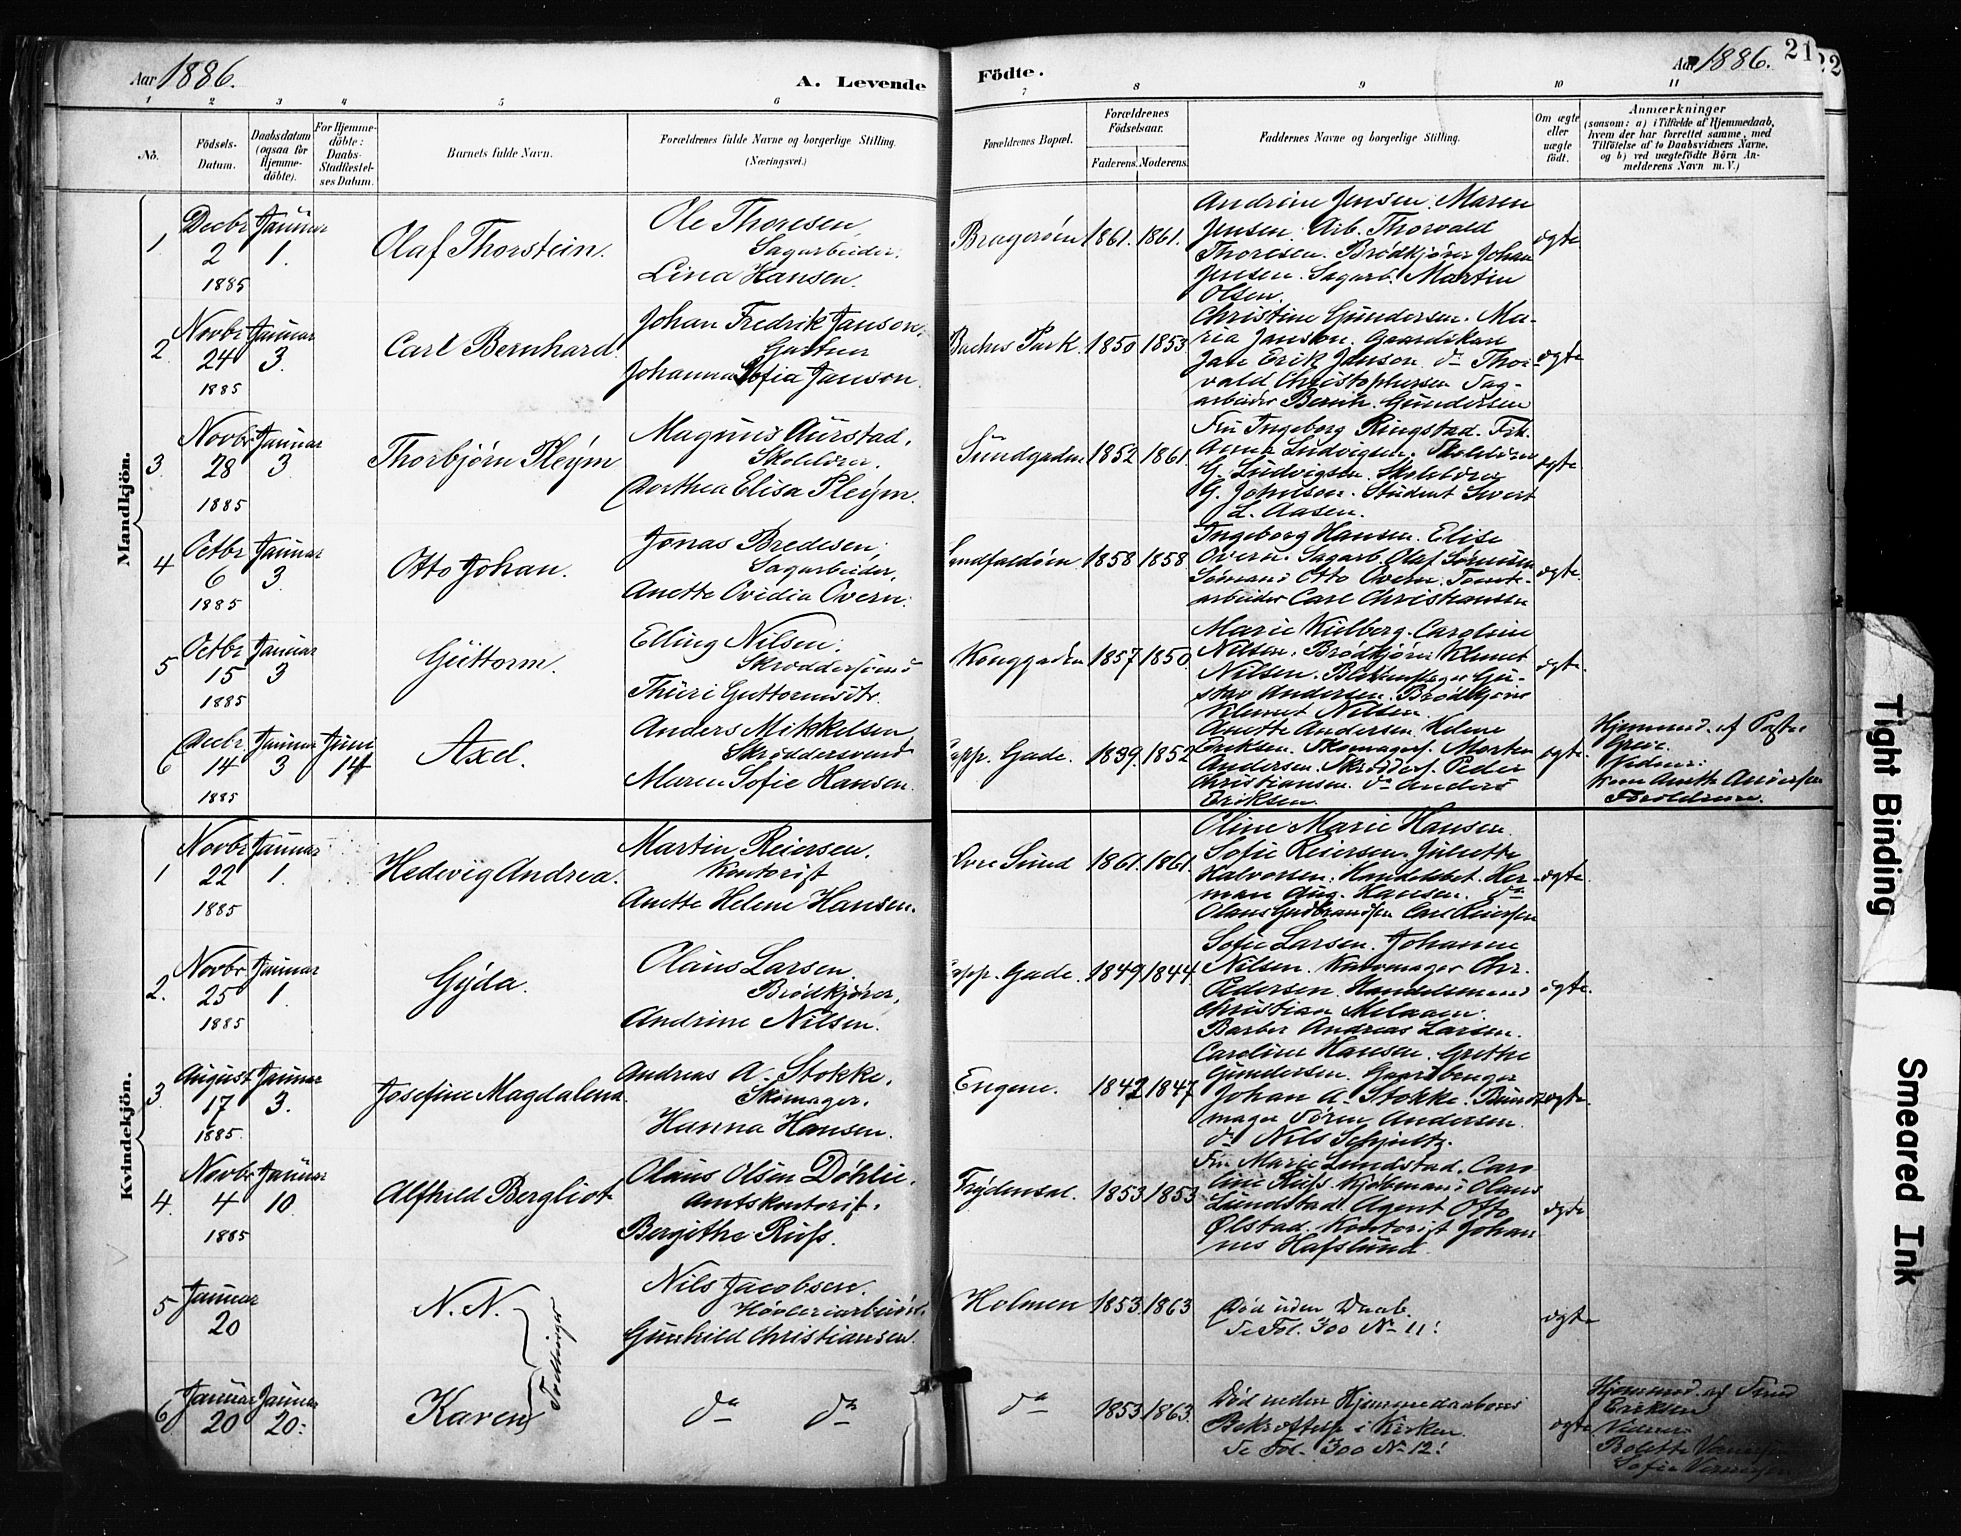 Aar 1886.
A. Levende Födte.
Aar 1886. 21
22
1 2 3 4 5 6 7 8 9 10 11
No.
Födsels-Datum.
Daabsdatum (ogsaa for Hjemme-döbte).
For Hjemme-döbte: Daabs-Stadfæstel-ses Datum.
Barnets fulde Navn.
Forældrenes fulde Navne og borgerlige Stilling. (Næringsvei.)
Forældrenes Bopæl.
Forældrenes Födselsaar.
Faderens. Moderens.
Faddernes Navne og borgerlige Stilling.
Om ægte eller uægte födt.
Anmærkninger
(saasom: a) i Tilfælde af Hjemmedaab, hvem der har forrettet samme, med Tilföielse af to Daabsvidners Navne, og b) ved uægtefödte Börn An-melderens Navn m. V.)
Mandkjön.
1 Decbr 2 1885 Januar 1.
Olaf Thorstein.
Ole Thoresen,
Sagarbeider.
Lina Hansen.
Bragerøen 1861. 1861.
Andrine Jensen. Maren
Jensen. Arb. Thorvald
Thoresen. Brødkjører Johan
Jensen. Sagarb. Martin
Olsen.
ægte
2 Novbr 24 1885 Januar 3.
Carl Bernhard.
Johan Fredrik Janson,
Gartner
Johanna Sofia Janson.
Bachus Park. 1850 1853
Christine Gundersen. Ma-
ria Janson.
Erik Janson. do Thor-
vald Christophersen Sag-
arbeider Gundersen
ægte
3 Novbr 28 1885 Januar 3
Thorbjørn Pleÿm
Magnus Aurstad,
Skolelærer.
Dorthea Elisa Pleÿm.
Sundgaden 1852 1861.
Fru Ingeborg Ringstad. Frk.
Anna Ludvigsen.
G. Ludvigsen. Skolelærer
G. Johnsen. Student Sivert
L. Aasen.
ægte
4 Octbr 6 1885 Januar 3
Otto Johan.
Jonas Bredesen,
Sagarbeider,
Anette Ovidia Overn.
Landfaldøen. 1858 1858
Ingeborg Hansen. Elise
Overn. Sagarb. Olaf
Sømand Otto Overn. Tomte-
arbeider Carl Christiansen
ægte
5 Octbr 15 1885 Januar 3
Guttorm.
Elling Nilsen.
Skræddersvend
Thuri Guttormsdtr.
Konggaden 1857 1850
Marie Kielberg. Caroline
Nilsen. Brødkjører Klemet
Nilsen. Gu-
stav Andersen. Brødkjører
Klemet Nilsen.
ægte
6 Decbr 14 1885 Januar 3 Juni 14
Axel.
Anders Mikkelsen,
Skræddersvend
Maren Sofie Hansen.
Capp. Gade. 1839. 1852
Anette Andersen. Helene
Eriksen. Skomagers. Morten
Andersen. Skrædders. Peder
Christiansen. do Anders
Eriksen.
ægte
Hjemmed. af
Vidner:
Anette Andersen
Forældrene.
Kvindekjön.
1 Novbr 22 1885 Januar 1.
Hedevig Andrea.
Martin Reiersen.
Kontorist
Anette Helene Hansen.
Øvre Sund 1861. 1861.
Oline Marie Hansen
Sofie Reiersen. Juliette
Halvorsen. Handelsbet. Her-
man Aug. Hansen. do
Olaus Gudbrandsen Carl Reiersen
ægte
2. Novbr 25 1885 Januar 1
Gÿda.
Olaus Larsen.
Brødkjører,
Andrine Nilsen.
Capp. Gade. 1849. 1844.
Sofie Larsen. Johanne
Nilsen. Chr.
Pedersen. Handelsmand
Christian
Barber Andreas Larsen.
ægte.
3 August 17 1885. Januar 3.
Josefine Magdalena
Andreas A. Stokke.
Skomager.
Hanna Hansen.
Engene. 1842 1847
Caroline Hansen. Grethe
Gundersen.
Johan A. Stokke.
mager Søren Andersen
do Nils
ægte
4. Novbr 4 1885 Januar 10
Alfhild Bergliot
Olaus Olsen Døhlie.
Amtskontorist.
Bergithe Russ.
Frÿdensal. 1853 1853
Fru Marie Lundstad. Caro
line Russ. Kjøbmand Olaus
Lundstad. Agent Otto
Ølstad. Kontorist Johan
nes Hafslund.
ægte
5 Januar 20
N. N.
Tvillinger
Nils Jacobsen.
Høvleriarbeider
Gunhild Christiansen.
Holmen 1853. 1863
Død uden Daab.
Se Fol. 300 No 11!
ægte
6 Januar 20 Januar 20.
Karen
do do
do 1853. 1863.
Død uden Hjemmedaabens
Bekræftelse i Kirken.
Se Fol. 300 No 12!
ægte
Hjemmed. af
Eriksen
Vidner:
Bolette
Sofie
Tight Binding
Smeared Ink